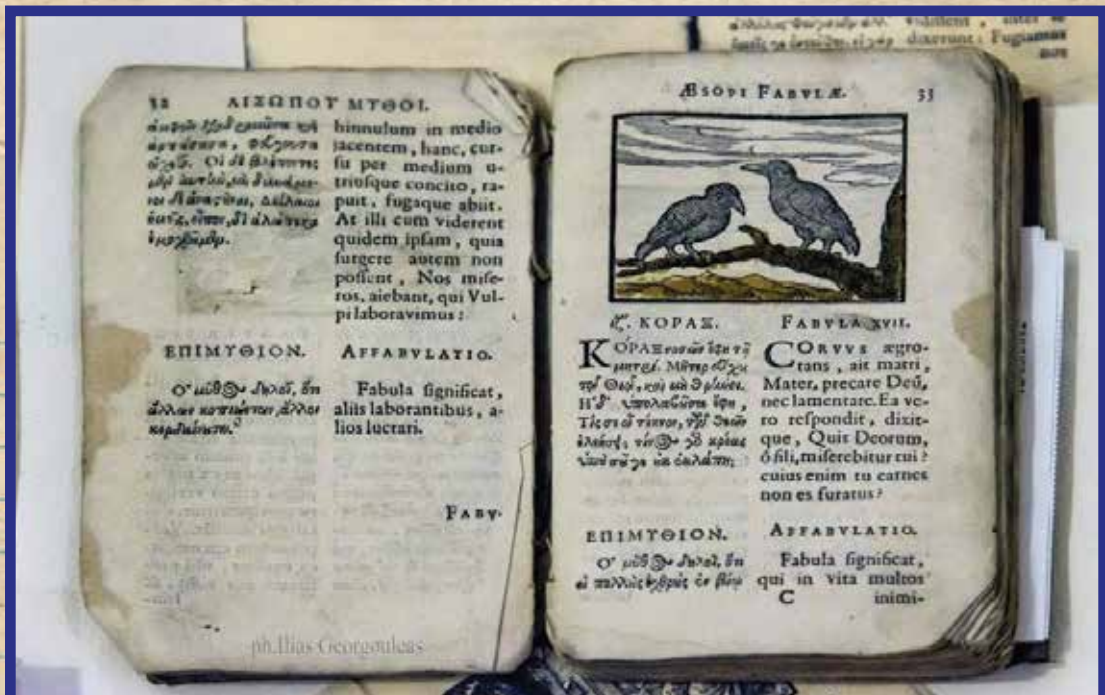 32 ΑΙΣΩΠΟΥ ΜΥΘΟΙ.
Οἱ δὲ βλέποντες
hinnulum in medio
jacentem, hanc, cur-
ſu per medium u-
triuſque concito, ra-
puit, fugaque abiit.
At illi cum viderent
quidem ipſam, quia
ſurgere autem non
poſſent, Nos miſe-
ros, aiebant, qui Vul-
pi laboravimus!
ΕΠΙΜΥΘΙΟΝ.
Ο' μῦθος δηλοῖ, ὅτι
ἄλλων κοπιώντων, ἄλλοι
κερδαίνουσι.
AFFABVLATIO.
Fabula ſignificat,
aliis laborantibus, a-
lios lucrari.
FABV-
ÆSOPI FABVLÆ. 33
ιζ. ΚΟΡΑΞ.
ΚΟΡΑΞ νοσῶν ἔφη τῇ
μητρί. Μῆτερ εὔχου
τῷ Θεῷ, καὶ μὴ θρήνει.
Η' δ' ὑπολαβοῦσα ἔφη,
Τίς σε ὦ τέκνον, τῶν θεῶν
ἐλεήσῃ; τίνος γὰρ κρέας
ὑπὸ σοῦ γε οὐκ ἐκλάπη;
FABVLA XVII.
CORVVS ægro-
tans, ait matri,
Mater, precare Deū,
nec lamentare. Ea ve-
ro reſpondit, dixit-
que, Quis Deorum,
ô fili, miſerebitur tui?
cuius enim tu carnes
non es furatus?
ΕΠΙΜΥΘΙΟΝ.
Ο' μῦθος δηλοῖ, ὅτι
οἱ πολλοὺς ἐχθροὺς ἐν βίῳ
AFFABVLATIO.
Fabula ſignificat,
qui in vita multos
C inimi-
vidiſſent, inter
dixerunt: Fugiamus
ph.Ilias Georgouleas